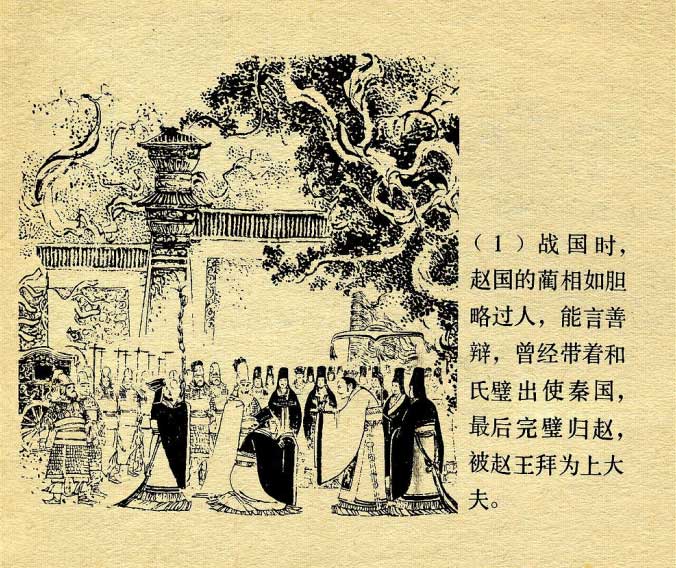 （1）战国时，
赵国的蔺相如胆
略过人，能言善
辩，曾经带着和
氏璧出使秦国，
最后完璧归赵，
被赵王拜为上大
夫。